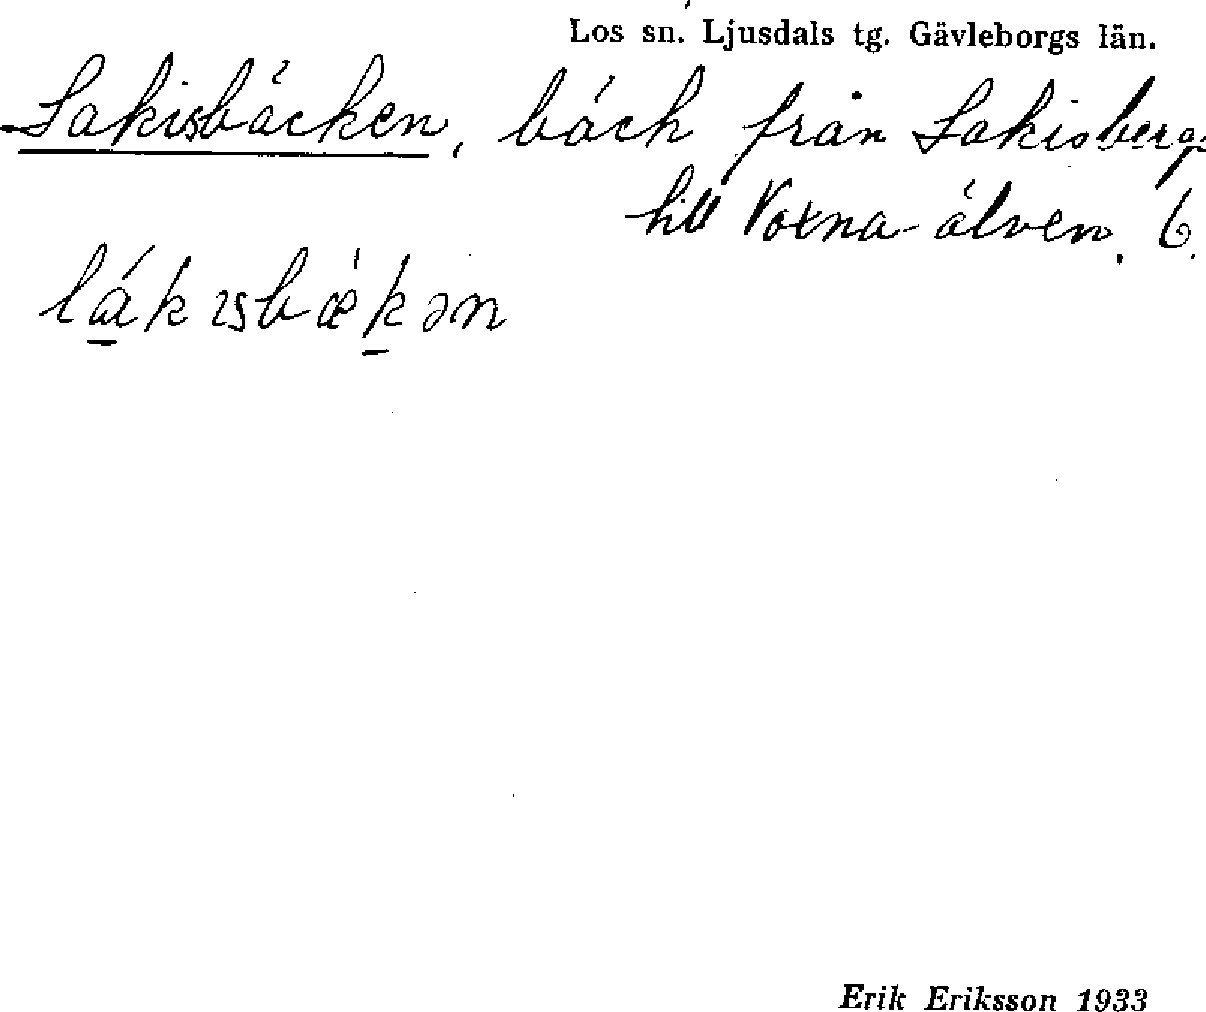 Los sn. Ljusdals tg. Gävleborgs län.
Lakisbäcken, bäck från Lakisberg
till Voxna älven. 6.
lákısbækən
Erik Eriksson 1933